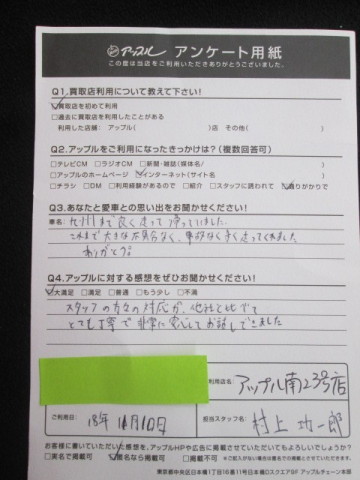 アップル アンケート用紙
この度は当店をご利用いただきありがとうございました。
Q1.買取店利用について教えて下さい!
☑買取店を初めて利用
□過去に買取店を利用したことがある
利用した店舗: アップル( )店 その他( )
Q2.アップルをご利用になったきっかけは?(複数回答可)
□テレビCM □ラジオCM □新聞・雑誌(媒体名/ )
□アップルのホームページ ☑インターネット(サイト名 )
□チラシ □DM □利用経験があるので □紹介 □スタッフに誘われて ☑通りがかりで
Q3.あなたと愛車との思い出をお聞かせください!
車名: 九州まで良く走って帰っていました。
これまで大きな不具合なく、事故なく良く走ってくれました
ありがとう。
Q4.アップルに対する感想をぜひお聞かせください!
☑大満足 □満足 □普通 □もう少し □不満
スタッフの方々の対応が、他社と比べて
とても丁寧で非常に安心してお話しできました
ご利用店名: アップル南23号店
ご利用日: 18年 11月10日
担当スタッフ名: 村上功一郎
お客様に書いていただいた感想を、アップルHPや広告に掲載させていただいてもよろしいでしょうか?
□実名で掲載可 ☑匿名なら掲載可 □掲載不可 ※ご記入がない場合は匿名での掲載とさせていただきます。
東京都中央区日本橋1丁目16番11号日本橋Dスクエア9F アップルチェーン本部